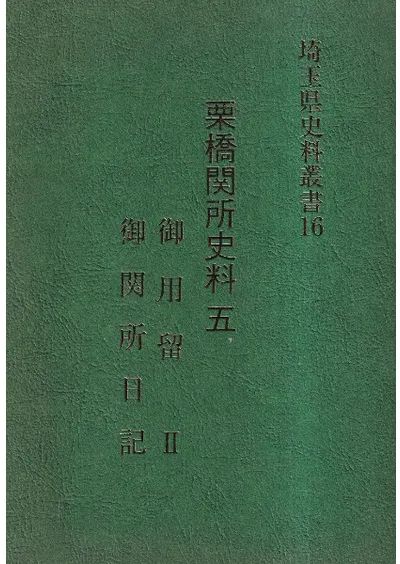 埼玉県史料叢書16
栗橋関所史料 五
御用留 Ⅱ
御関所日記